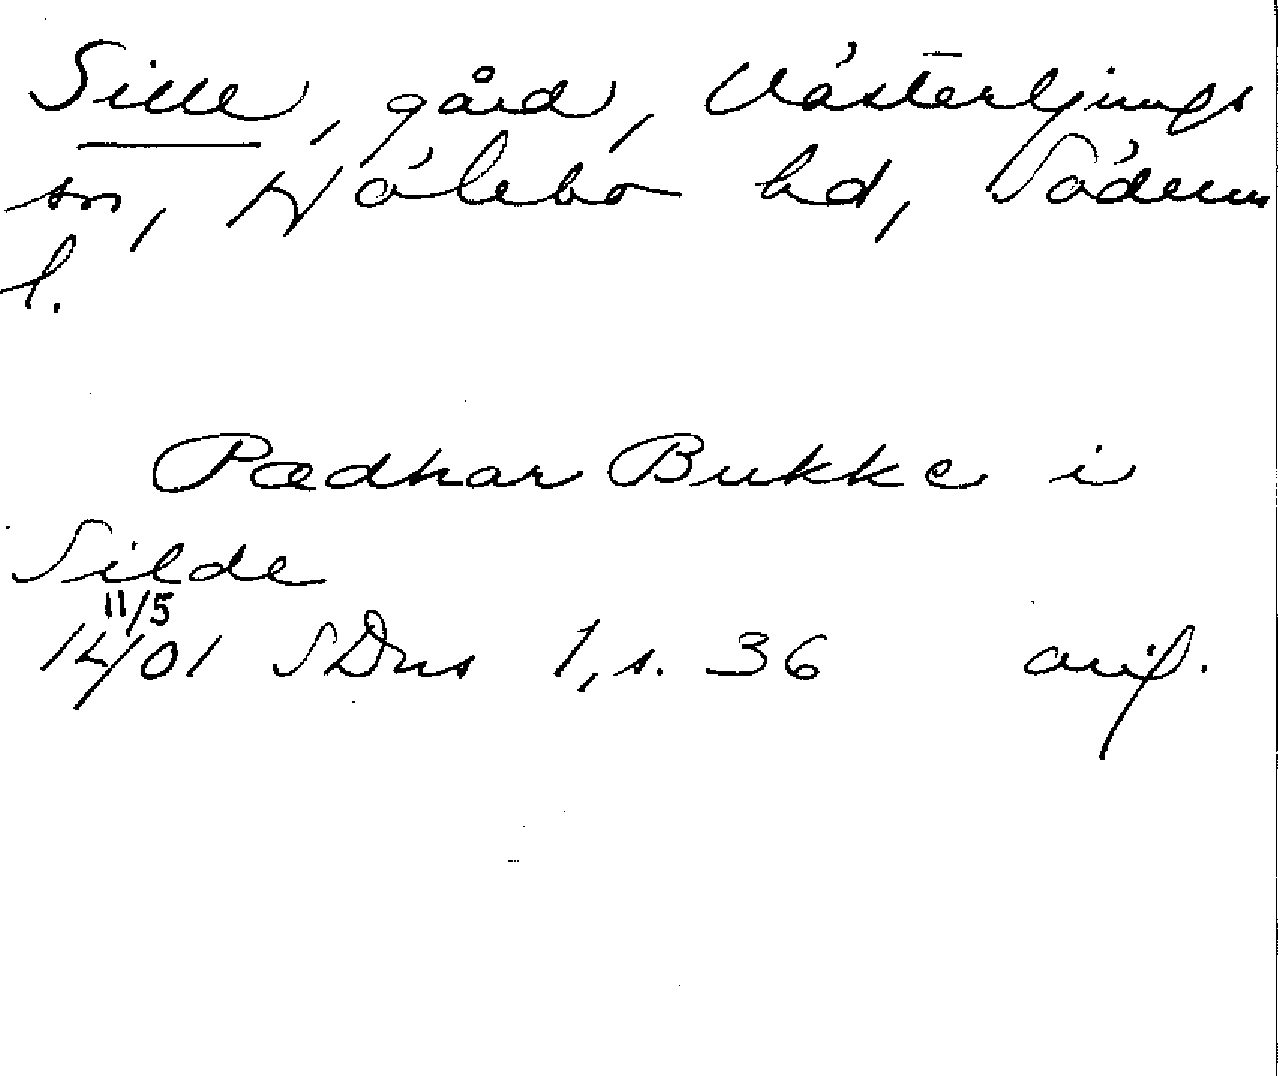 Sille, gård, Västerljungs
sn, Hölebo hd, Söderm
l.
Pædhar Bukke i
Silde
11/5
1401 SDns 1, s. 36